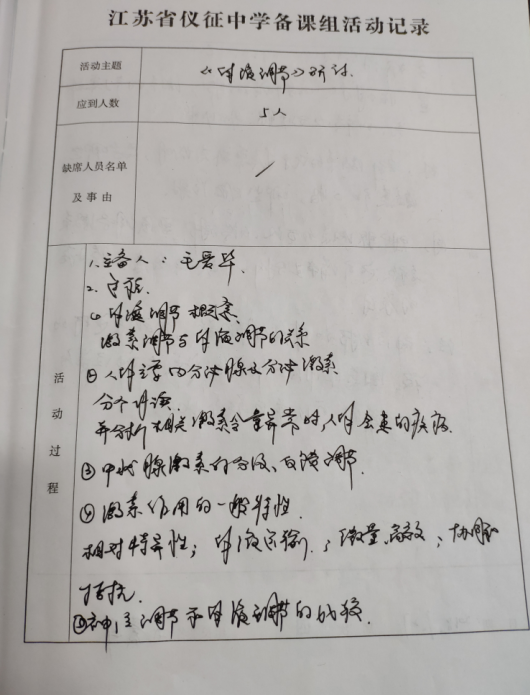 江苏省仪征中学备课组活动记录
活动主题
《体液调节》研讨.
应到人数
5人
缺席人员名单
及事由
/
活动过程
1.主备人：毛爱华.
2.
① 体液调节概念
激素调节与体液调节的关系
② 人体主要内分泌腺及分泌激素
分个讲读.
并分析相关激素含量异常时,人体会患的疾病.
③ 甲状腺激素的分级、反馈调节.
④ 激素作用的一般特性.
相对特异性；体液运输；微量、高效；协同和
拮抗.
⑤ 神经调节和体液调节的比较.